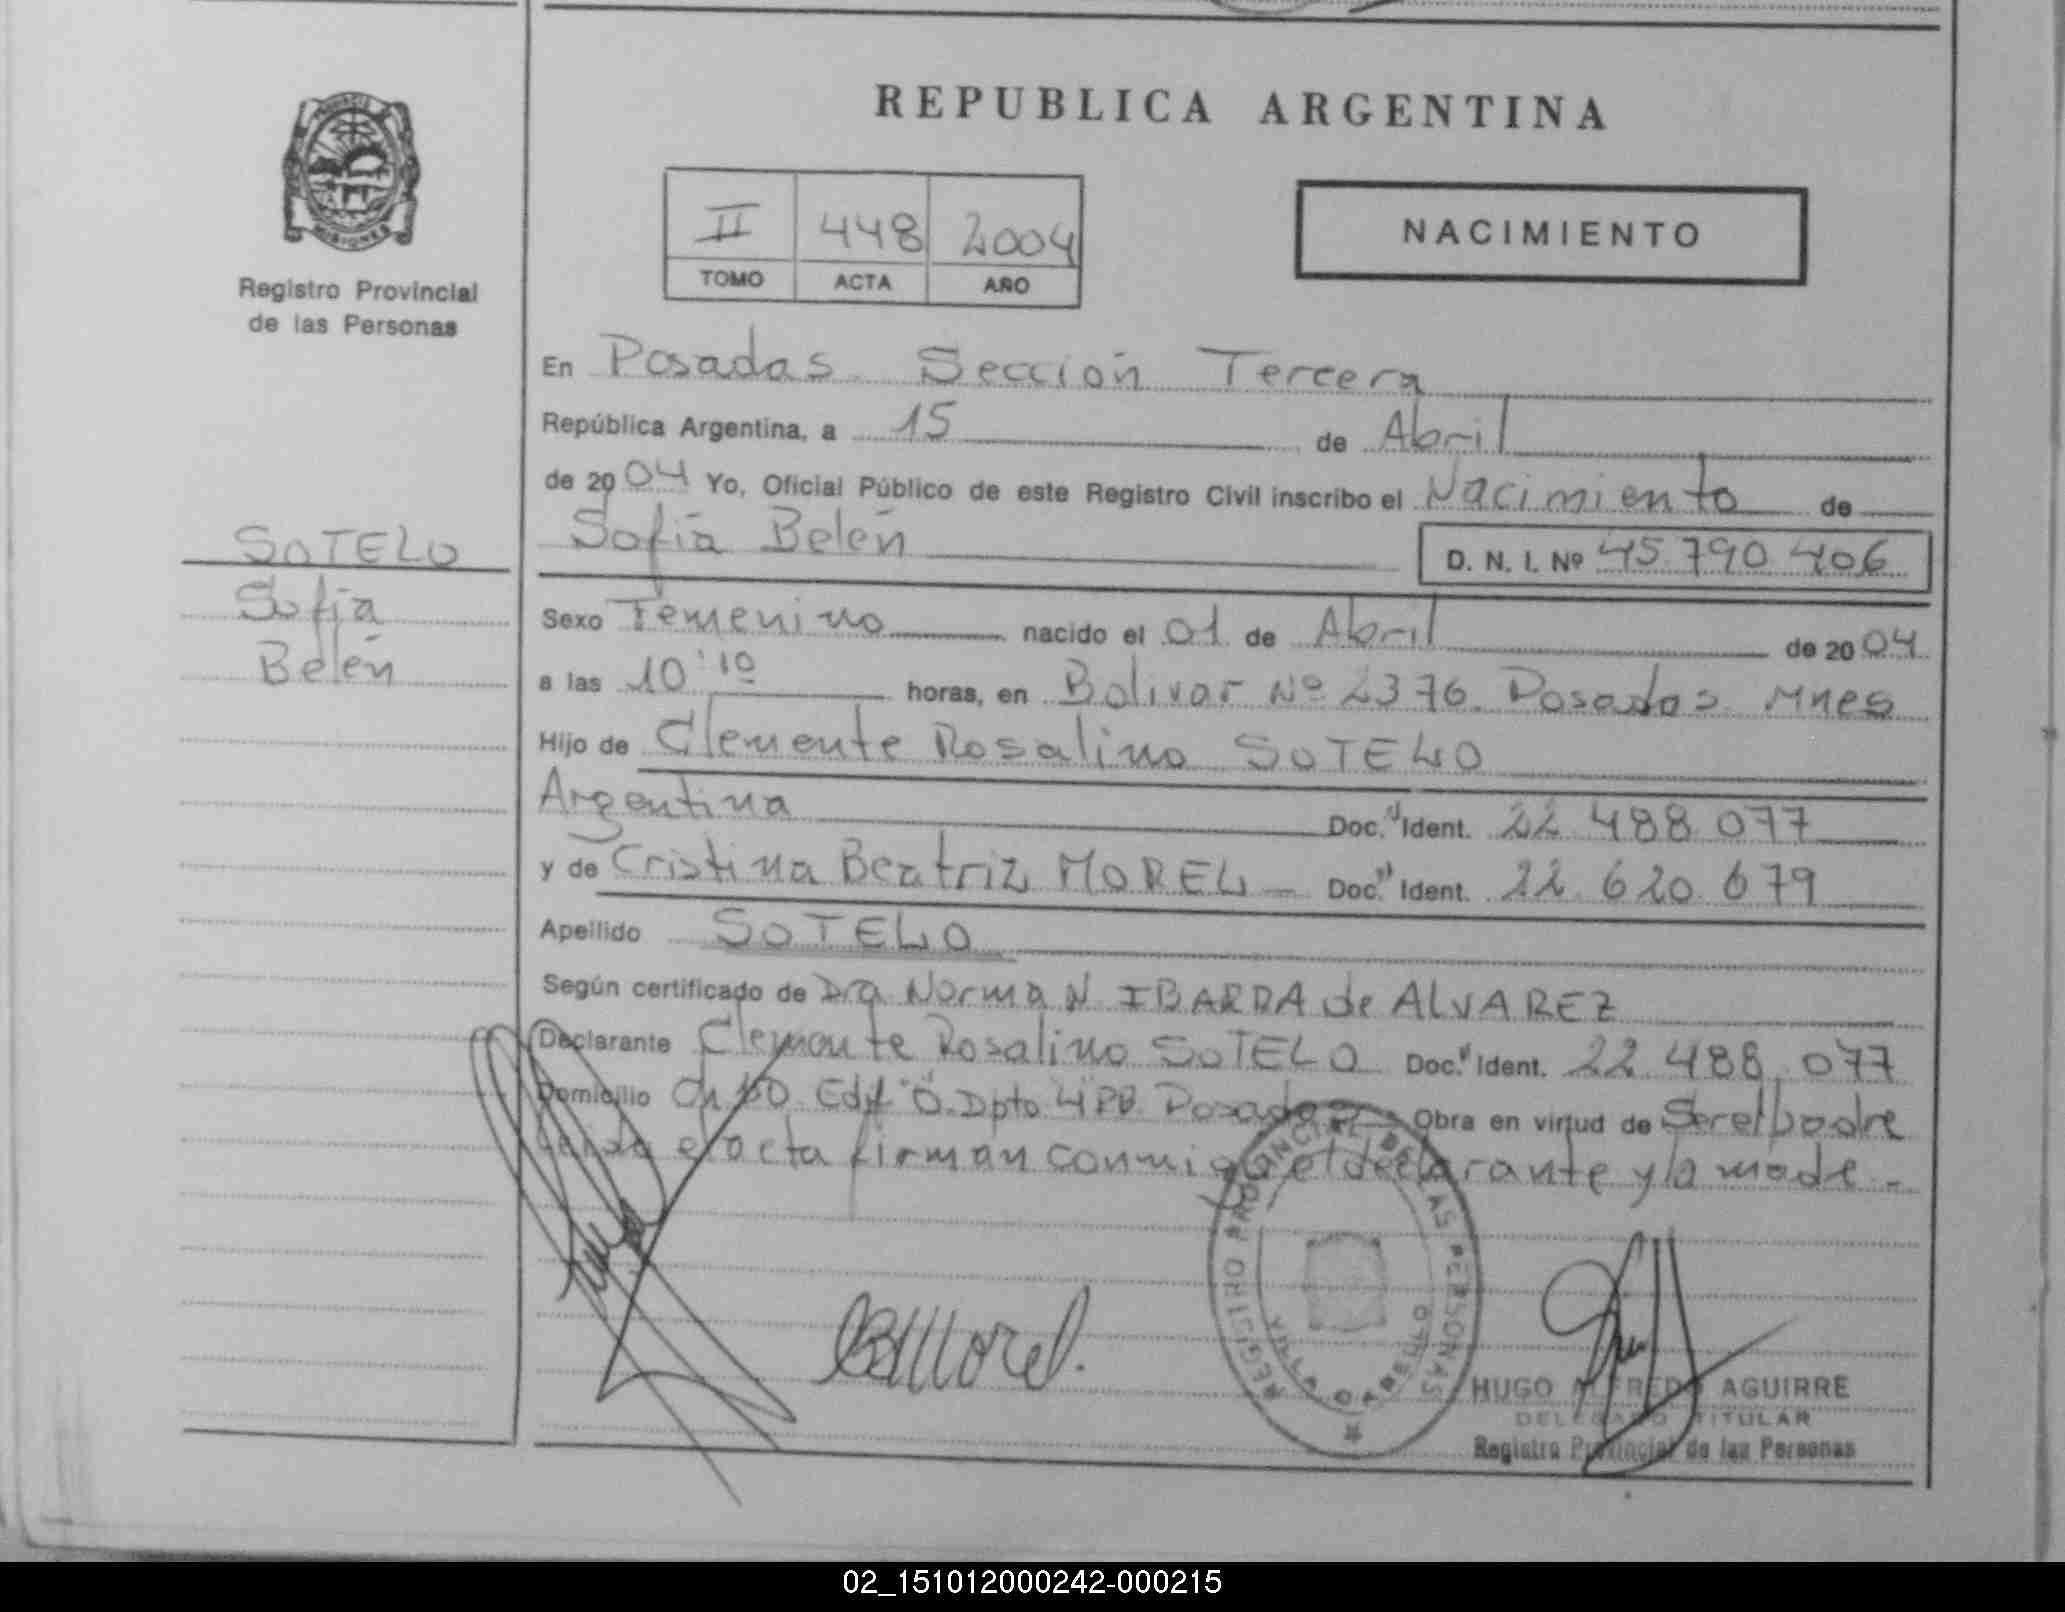 REPUBLICA ARGENTINA
MISIONES
Registro Provincial
de las Personas
II 448 2004
TOMO ACTA AÑO
NACIMIENTO
En Posadas Sección Tercera
República Argentina, a 15 de Abril
de 2004 Yo, Oficial Público de este Registro Civil inscribo el Nacimiento de
Sofía Belén D. N. I. Nº 45.790.406
SOTELO
Sofía
Belén
Sexo Femenino nacido el 01 de Abril de 2004
a las 10:10 horas, en Bolivar Nº 2376. Posadas. Mnes
Hijo de Clemente Rosalino SOTELO
Argentina Doc. Ident. 22.488.077
y de Cristina Beatriz MOREL Doc. Ident. 22.620.679
Apellido SOTELO
Según certificado de Dra Norma N IBARRA de ALVAREZ
Declarante Clemente Rosalino SOTELO Doc. Ident. 22.488.077
Domicilio Ch Edif Dpto 4 PB Posadas Obra en virtud de Ser el padre
Leida el acta firman conmigo el declarante y la madre.-
CBMorel.
REGISTRO PROVINCIAL DE LAS PERSONAS
VILLA
HUGO ALFREDO AGUIRRE
DELEGADO TITULAR
Registro Provincial de las Personas
02_151012000242-000215